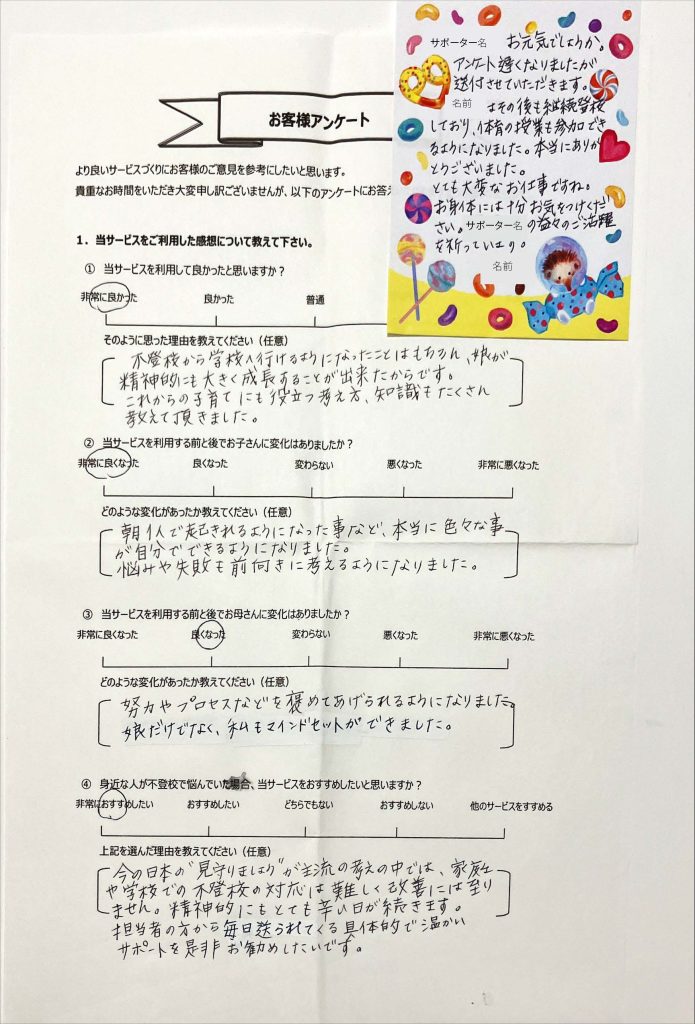 サポーター名 お元気でしょうか。
アンケート遅くなりましたが
送付させていただきます。
名前 はその後も継続登校
しており、体育の授業も参加でき
るようになりました。本当にありが
とうございました。
とても大変なお仕事ですね。
お身体には十分お気をつけくだ
さい。サポーター名 の益々のご活躍
を祈っています。
名前
お客様アンケート
より良いサービスづくりにお客様のご意見を参考にしたいと思います。
貴重なお時間をいただき大変申し訳ございませんが、以下のアンケートにお答え
1．当サービスをご利用した感想について教えて下さい。
① 当サービスを利用して良かったと思いますか？
非常に良かった 良かった 普通
そのように思った理由を教えてください（任意）
不登校から学校へ行けるようになったことはもちろん、娘が
精神的にも大きく成長することが出来たからです。
これからの子育てにも役立つ考え方、知識もたくさん
教えて頂きました。
② 当サービスを利用する前と後でお子さんに変化はありましたか？
非常に良くなった 良くなった 変わらない 悪くなった 非常に悪くなった
どのような変化があったか教えてください（任意）
朝1人で起きれるようになった事など、本当に色々な事
が自分でできるようになりました。
悩みや失敗も前向きに考えるようになりました。
③ 当サービスを利用する前と後でお母さんに変化はありましたか？
非常に良くなった 良くなった 変わらない 悪くなった 非常に悪くなった
どのような変化があったか教えてください（任意）
努力やプロセスなどを褒めてあげられるようになりました。
娘だけでなく、私もマインドセットができました。
④ 身近な人が不登校で悩んでいた場合、当サービスをおすすめしたいと思いますか？
非常におすすめしたい おすすめしたい どちらでもない おすすめしない 他のサービスをすすめる
上記を選んだ理由を教えてください（任意）
今の日本の"見守りましょう"が主流の考えの中では、家庭
や学校での不登校の対応は難しく改善には至り
ません。精神的にもとても辛い日が続きます。
担当者の方から毎日送られてくる具体的で温かい
サポートを是非お勧めしたいです。